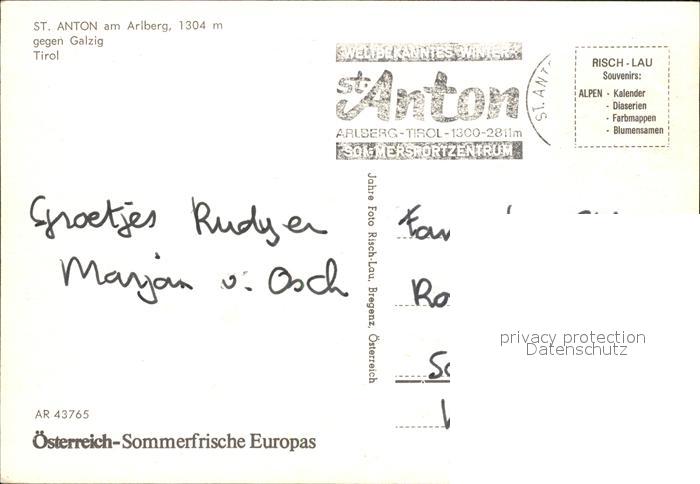 ST. ANTON am Arlberg, 1304 m
gegen Galzig
Tirol
WELTBEKANNTES WINTER-
St. Anton
ARLBERG-TIROL-1300-2811m
SOMMERSPORTZENTRUM
ST. ANT
RISCH-LAU
Souvenirs:
ALPEN - Kalender
- Diaserien
- Farbmappen
- Blumensamen
Groetjes
Marjan v. Osch
Jahre Foto Risch-Lau, Bregenz, Österreich
Fam
Ro
privacy protection
Datenschutz
AR 43765
Österreich-Sommerfrische Europas